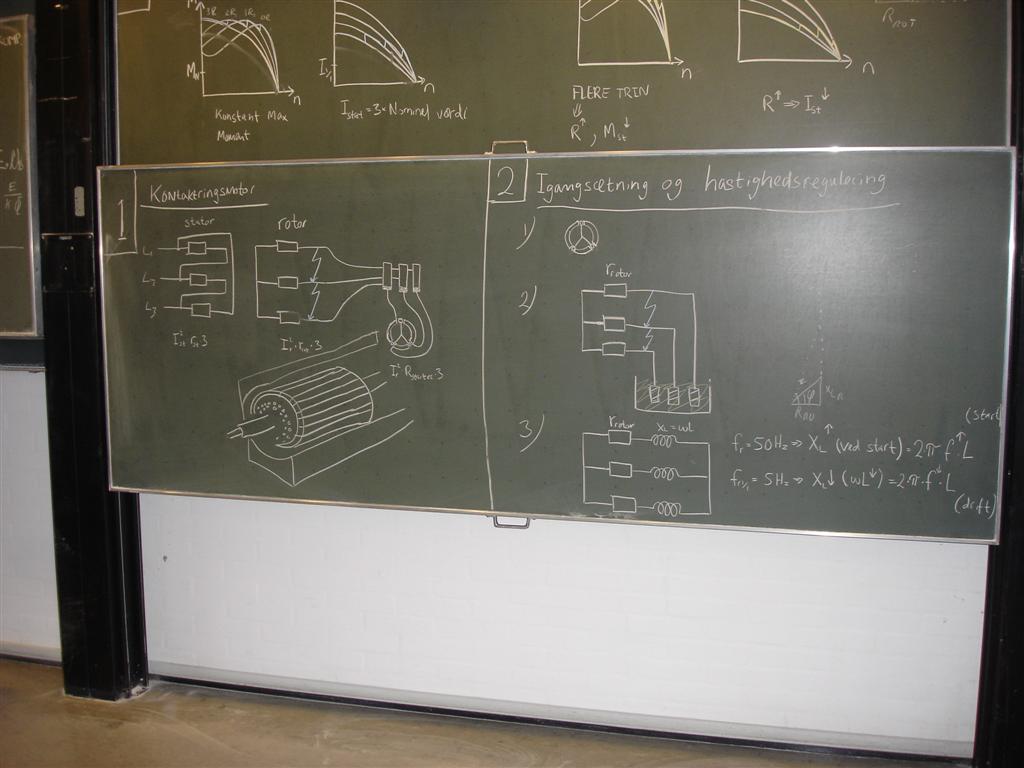 3R 2R 1R 0R
M_N
n
Konstant Max
Moment
I_N
n
I_start = 3 × Nominel værdi
n
FLERE TRIN
⇓
R↑, M_st↓
n
R↑ ⇒ I_st↓
R_ROT
1
Kontaktringsmotor
stator
rotor
L1
L2
L3
2
Igangsætning og hastighedsregulering
1)
2)
r_rotor
3)
r_rotor
X_L = ωL
Z
φ
(start
f_r = 50Hz ⇒ X_L↑ (ved start) = 2π·f↑·L
= 5Hz ⇒ X_L↓ (ωL↓) = 2π·f↓·L
(drift)